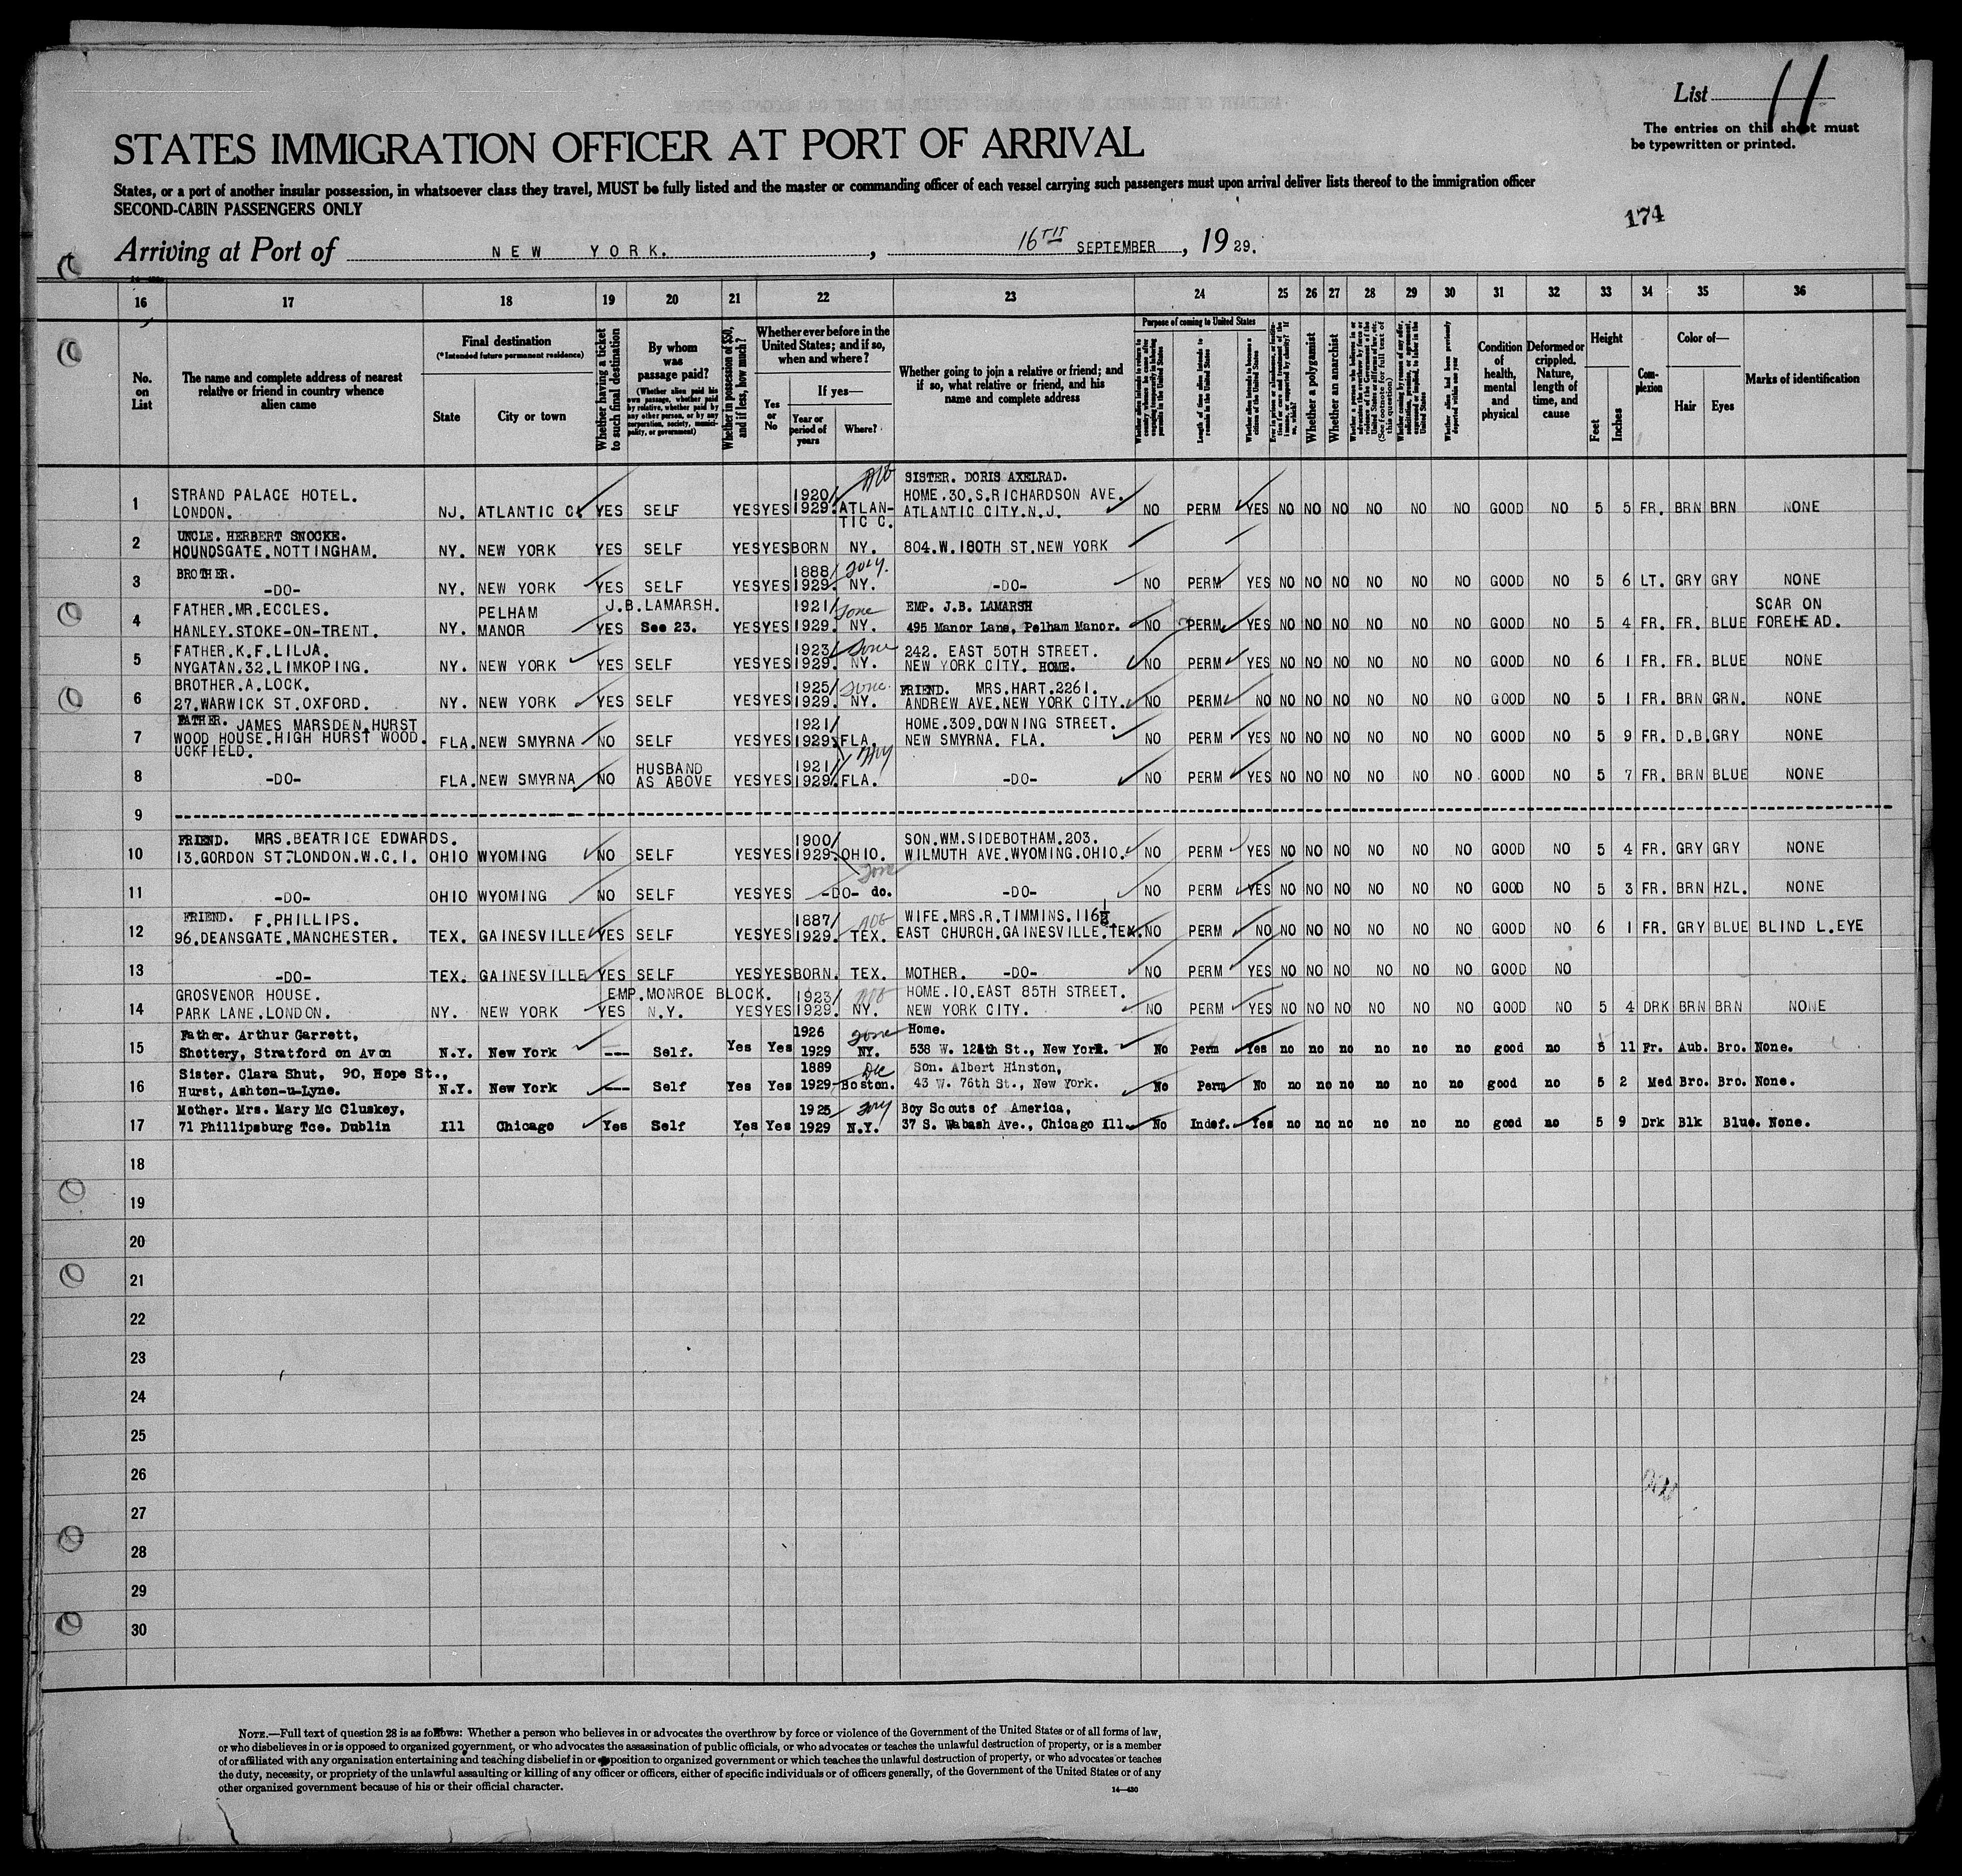 List 11
The entries on this sheet must
be typewritten or printed.
STATES IMMIGRATION OFFICER AT PORT OF ARRIVAL
States, or a port of another insular possession, in whatsoever class they travel, MUST be fully listed and the master or commanding officer of each vessel carrying such passengers must upon arrival deliver lists thereof to the immigration officer
SECOND-CABIN PASSENGERS ONLY
174
Arriving at Port of NEW YORK. , 16TH SEPTEMBER , 1929.
16 17 18 19 20 21 22 23 24 25 26 27 28 29 30 31 32 33 34 35 36
No. on List
The name and complete address of nearest relative or friend in country whence alien came
Final destination
(*Intended future permanent residence)
State
City or town
Whether having a ticket to such final destination
By whom was passage paid?
(Whether alien paid his own passage, whether paid by relative, whether paid by any other person, or by any corporation, society, municipality, or government)
Whether in possession of $50, and if less, how much?
Whether ever before in the United States; and if so, when and where?
Yes or No
If yes—
Year or period of years
Where?
Whether going to join a relative or friend; and if so, what relative or friend, and his name and complete address
Purpose of coming to United States
Length of time alien intends to remain in the United States
Whether alien intends to become a citizen of the United States
Whether a polygamist
Whether an anarchist
(See footnote for full text of this question)
Whether alien had been previously deported within one year
Condition of health, mental and physical
Deformed or crippled. Nature, length of time, and cause
Height
Feet
Inches
Complexion
Color of—
Hair
Eyes
Marks of identification
SISTER. DORIS AXELRAD.
STRAND PALACE HOTEL. 1920/ HOME.30.S.RICHARDSON AVE.
1 LONDON. NJ. ATLANTIC C. YES SELF YES YES 1929. ATLANTIC C. ATLANTIC CITY.N.J. NO PERM YES NO NO NO NO NO NO GOOD NO 5 5 FR. BRN BRN NONE
UNCLE. HERBERT SNOCKE.
2 HOUNDSGATE.NOTTINGHAM. NY. NEW YORK YES SELF YES YES BORN NY. 804.W.180TH ST.NEW YORK
BROTHER. 1888/
3 -DO- NY. NEW YORK YES SELF YES YES 1929. NY. -DO- NO PERM YES NO NO NO NO NO NO GOOD NO 5 6 LT. GRY GRY NONE
FATHER.MR.ECCLES. PELHAM J.B.LAMARSH. 1921/ EMP. J.B. LAMARSH SCAR ON
4 HANLEY.STOKE-ON-TRENT. NY. MANOR YES See 23. YES YES 1929. NY. 495 Manor Lane, Pelham Manor. NO PERM YES NO NO NO NO NO NO GOOD NO 5 4 FR. FR. BLUE FOREHEAD.
FATHER.K.F.LILJA. 1923/ 242. EAST 50TH STREET.
5 NYGATAN.32.LIMKOPING. NY. NEW YORK YES SELF YES YES 1929. NY. NEW YORK CITY. HOME. NO PERM YES NO NO NO NO NO NO GOOD NO 6 1 FR. FR. BLUE NONE
BROTHER.A.LOCK. 1925/ FRIEND. MRS.HART.2261.
6 27.WARWICK ST.OXFORD. NY. NEW YORK YES SELF YES YES 1929. NY. ANDREW AVE.NEW YORK CITY. NO PERM NO NO NO NO NO NO NO GOOD NO 5 1 FR. BRN GRN. NONE
FATHER. JAMES MARSDEN,HURST 1921/ HOME.309.DOWNING STREET.
7 WOOD HOUSE.HIGH HURST WOOD. UCKFIELD. FLA. NEW SMYRNA NO SELF YES YES 1929. FLA. NEW SMYRNA. FLA. NO PERM YES NO NO NO NO NO NO GOOD NO 5 9 FR. D.B. GRY NONE
HUSBAND 1921/
8 -DO- FLA. NEW SMYRNA NO AS ABOVE YES YES 1929. FLA. -DO- NO PERM YES NO NO NO NO NO NO GOOD NO 5 7 FR. BRN BLUE NONE
9
FRIEND. MRS.BEATRICE EDWARDS. 1900/ SON.WM.SIDEBOTHAM.203.
10 13.GORDON ST.LONDON.W.C.1. OHIO WYOMING NO SELF YES YES 1929. OHIO. WILMUTH AVE.WYOMING.OHIO. NO PERM YES NO NO NO NO NO NO GOOD NO 5 4 FR. GRY GRY NONE
11 -DO- OHIO WYOMING NO SELF YES YES -DO- do. -DO- NO PERM YES NO NO NO NO NO NO GOOD NO 5 3 FR. BRN HZL. NONE
FRIEND. F.PHILLIPS. 1887/ WIFE.MRS.R.TIMMINS.116½
12 96.DEANSGATE.MANCHESTER. TEX. GAINESVILLE YES SELF YES YES 1929. TEX. EAST CHURCH.GAINESVILLE.TEX. NO PERM NO NO NO NO NO NO NO GOOD NO 6 1 FR. GRY BLUE BLIND L.EYE
13 -DO- TEX. GAINESVILLE YES SELF YES YES BORN. TEX. MOTHER. -DO- NO PERM YES NO NO NO NO NO NO GOOD NO
GROSVENOR HOUSE. EMP.MONROE BLOCK. 1923/ HOME.10.EAST 85TH STREET.
14 PARK LANE.LONDON. NY. NEW YORK YES N.Y. YES YES 1929. NY. NEW YORK CITY. NO PERM YES NO NO NO NO NO NO GOOD NO 5 4 DRK BRN BRN NONE
Father. Arthur Garrett, 1926 Home.
15 Shottery, Stratford on Avon N.Y. New York --- Self. Yes Yes 1929 NY. 538 W. 124th St., New York. No Perm Yes no no no no no no good no 5 11 Fr. Aub. Bro. None.
Sister. Clara Shut, 90, Hope St., 1889 Son. Albert Hinston,
16 Hurst, Ashton-u-Lyne. N.Y. New York --- Self Yes Yes 1929 Boston. 43 W. 76th St., New York. No Perm No no no no no no no good no 5 2 Med Bro. Bro. None.
Mother. Mrs. Mary Mc Cluskey, 1925 Boy Scouts of America,
17 71 Phillipsburg Tce. Dublin Ill Chicago Yes Self Yes Yes 1929 N.Y. 37 S. Wabash Ave., Chicago Ill. No Indef. Yes no no no no no no good no 5 9 Drk Blk Blue. None.
18
19
20
21
22
23
24
25
26
27
28
29
30
NOTE.—Full text of question 28 is as follows: Whether a person who believes in or advocates the overthrow by force or violence of the Government of the United States or of all forms of law,
or who disbelieves in or is opposed to organized government, or who advocates the assassination of public officials, or who advocates or teaches the unlawful destruction of property, or is a member
of or affiliated with any organization entertaining and teaching disbelief in or opposition to organized government or which teaches the unlawful destruction of property, or who advocates or teaches
the duty, necessity, or propriety of the unlawful assaulting or killing of any officer or officers, either of specific individuals or of officers generally, of the Government of the United States or of any
other organized government because of his or their official character.
14—430